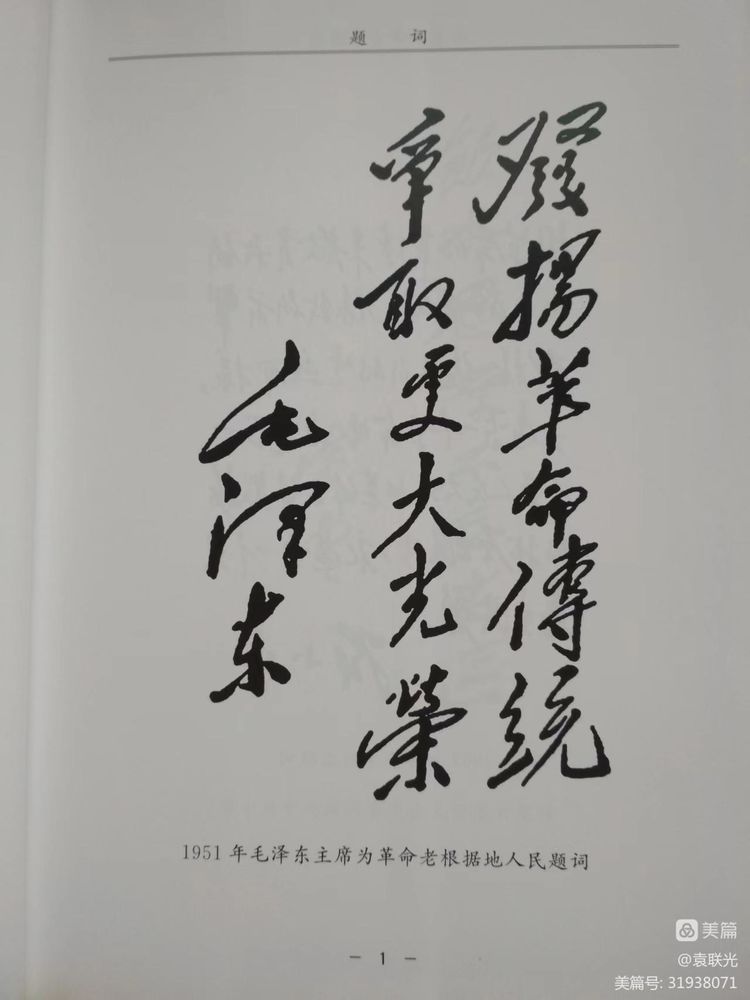 题 词
發揚革命傳統
爭取更大光榮
毛泽东
1951年毛泽东主席为革命老根据地人民题词
- 1 -
美篇
@袁联光
美篇号: 31938071